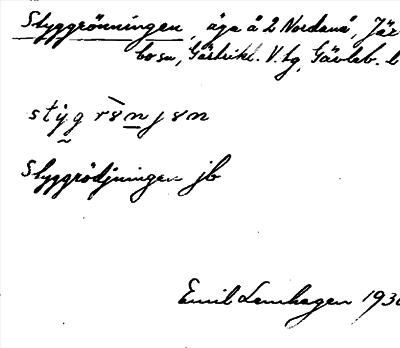 Styggrönningen, äga å 2 Nordanå, Jär
bo sn, Gästrikl. V. tg, Gävleb. l
styg rönjen
Styggrödjningen jb
Emil Lenhagen 193